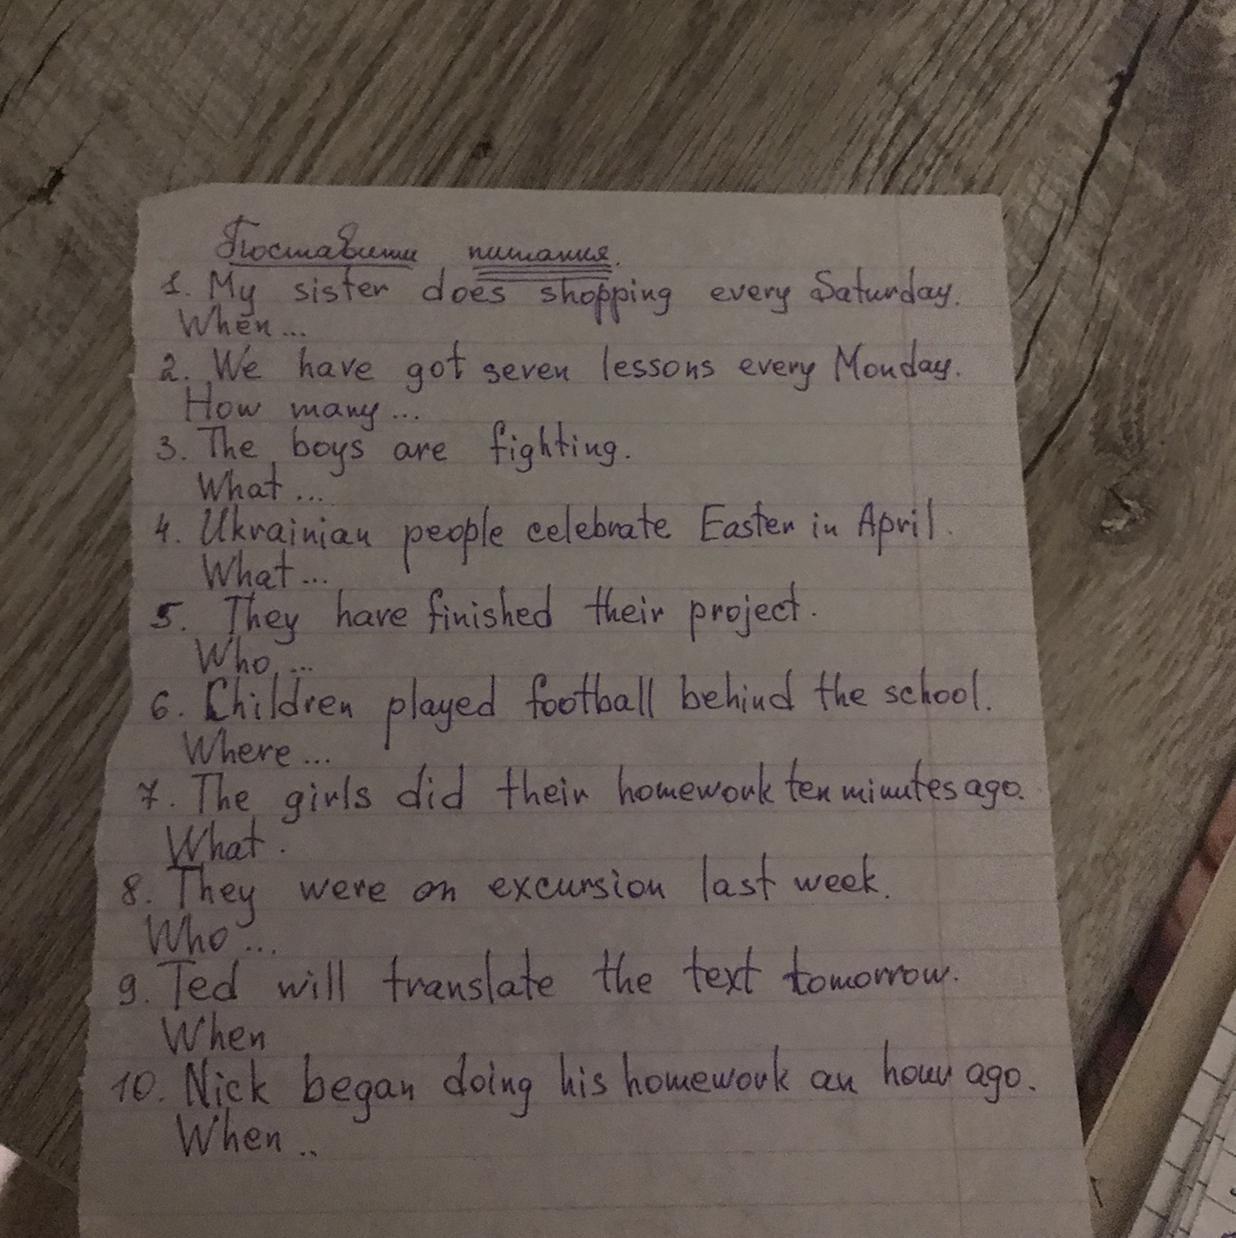 Поставити питання.
1. My sister does shopping every Saturday.
When...
2. We have got seven lessons every Monday.
How many...
3. The boys are fighting.
What...
4. Ukrainian people celebrate Easter in April.
What...
5. They have finished their project.
Who...
6. Children played football behind the school.
Where...
7. The girls did their homework ten minutes ago.
What.
8. They were on excursion last week.
Who...
9. Ted will translate the text tomorrow.
When
10. Nick began doing his homework an hour ago.
When..